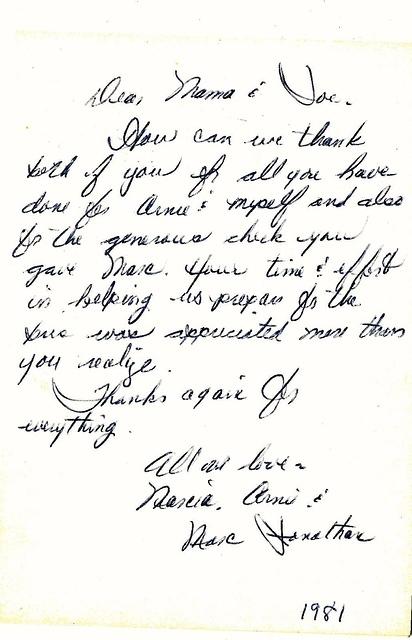 Dear Mama & Joe.
How can we thank
both of you for all you have
done for Arnie & myself and also
for the generous check you
gave Marc. Your time & effort
in helping us prepare for the
was appreciated more than
you realize.
Thanks again for
everything.
All our love ~
Marcia, Arnie &
Marc Jonathan
1981